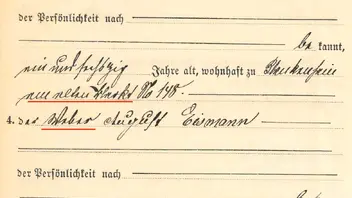 der Persönlichkeit nach
be kannt,
ein und sechszig Jahre alt, wohnhaft zu
am alten Markt No 148.
4. der Weber August Eismann
der Persönlichkeit nach